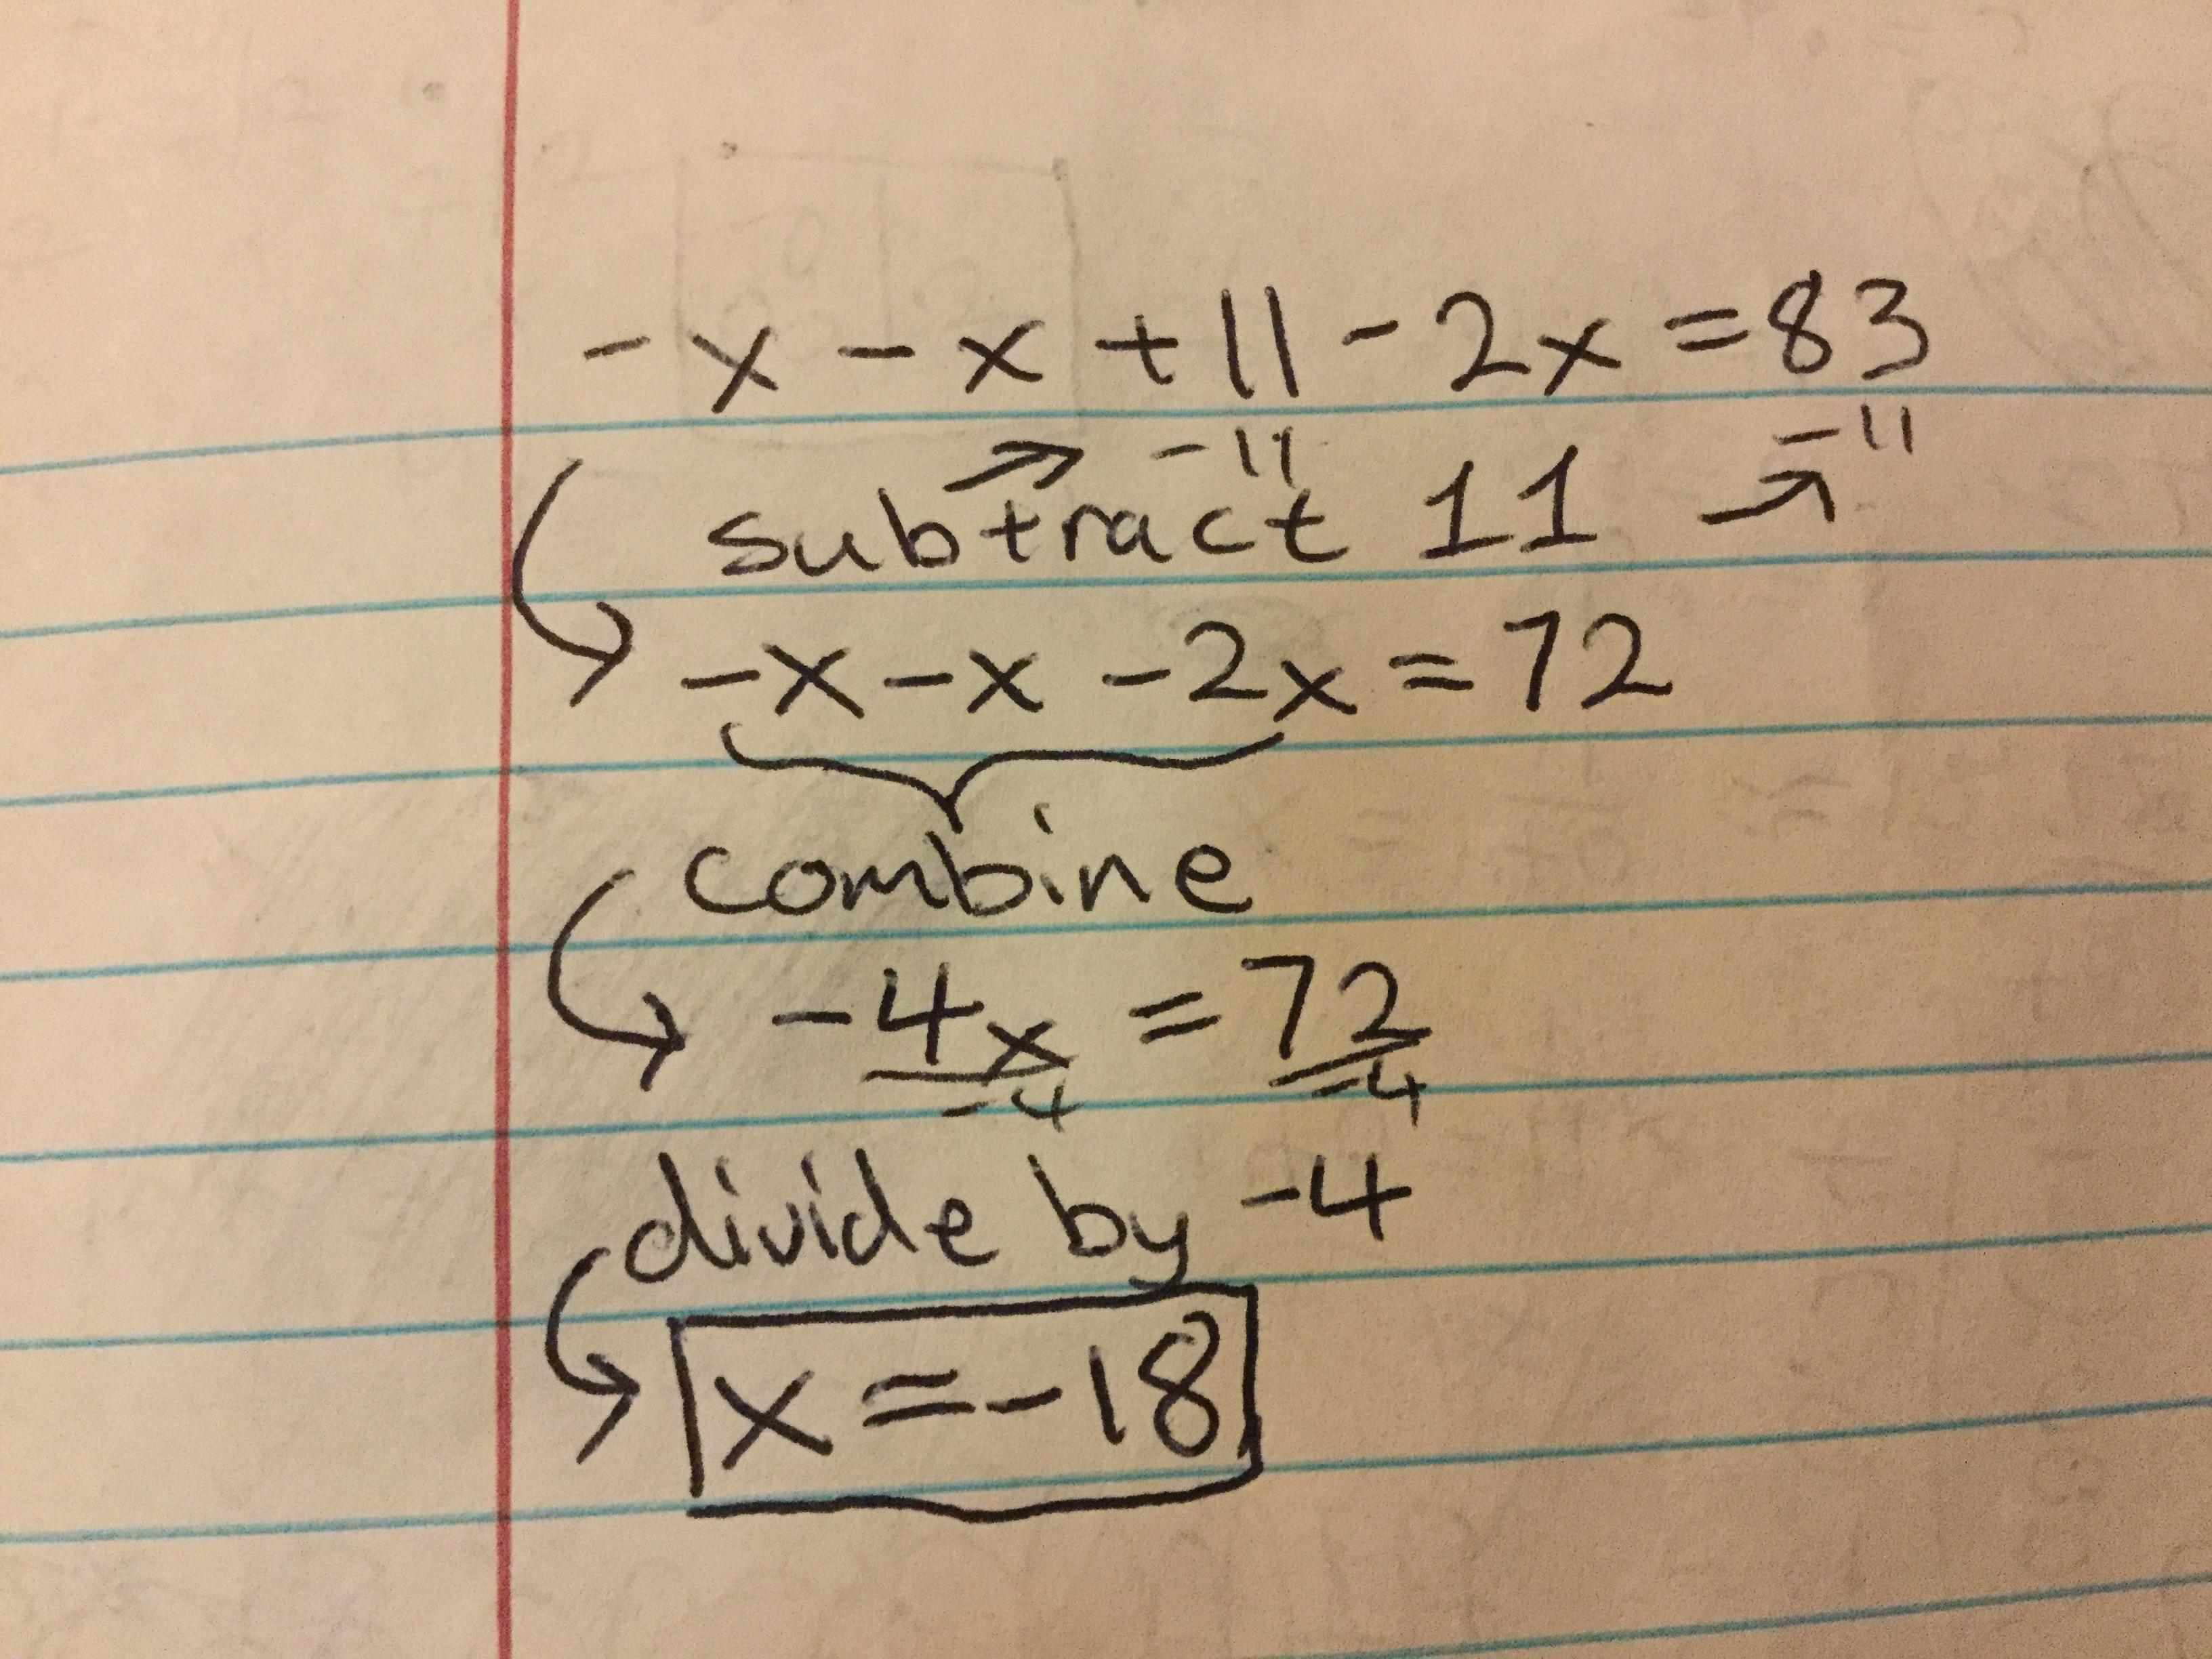 -x - x + 11 - 2x = 83
-11 -11
subtract 11
-x - x - 2x = 72
combine
-4x = 72
-4 -4
divide by -4
x = -18